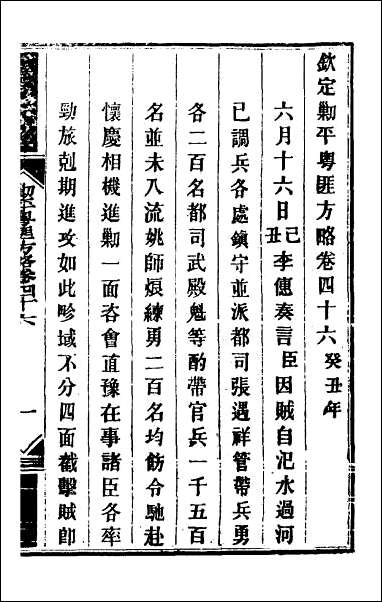 欽定勦平粵匪方略卷四十六 癸丑年
六月十六日己丑李僡奏言臣因賊自汜水過河
已調兵各處鎮守並派都司張遇祥管帶兵勇
各二百名都司武殿魁等酌帶官兵一千五百
名並未入流姚師煾練勇二百名均飭令馳赴
懷慶相機進勦一面咨會直豫在事諸臣各率
勁旅剋期進攻如此畛域不分四面截擊賊卽
勦平粵匪方略卷四十六
一